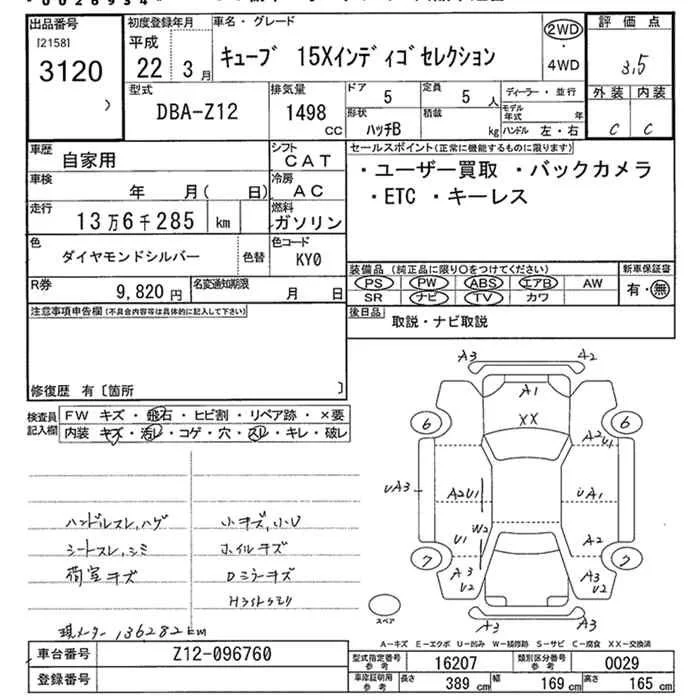 出品番号
[2158]
3120
初度登録年月
平成
22 3 月
車名・グレード
キューブ 15Xインディゴセレクション
2WD
・
4WD
評価点
3.5
外装 内装
C C
型式
DBA-Z12
排気量
1498
CC
ドア
5
定員
5 人
形状
ハッチB
積載
kg
ディーラー・並行
モデル年式 年
ハンドル 左・右
車歴
自家用
シフト
CAT
車検
年 月( 日)
冷房
AC
走行
13万6千285 km
燃料
ガソリン
色
ダイヤモンドシルバー
色替
色コード
KY0
R券
9,820 円
名変通知期限
月 日
セールスポイント(正常に機能するものに限ります)
・ユーザー買取 ・バックカメラ
・ETC ・キーレス
装備品 (純正品に限り○をつけてください)
PS PW ABS エアB AW
SR ナビ TV カワ
新車保証書
有・無
後日品
取説・ナビ取説
注意事項申告欄(不具合内容等は具体的に記入して下さい)
修復歴 有〔箇所 〕
検査員記入欄
FW キズ・飛石・ヒビ割・リペア跡・×要
内装 キズ・汚レ・コゲ・穴・スレ・キレ・破レ
ハンドルスレ,ハゲ
シートスレ,シミ
荷室キズ
小キズ,小U
ホイルキズ
Dミラーキズ
現メーター 136282km
A3 A2
A1
XX
6 6
A2 U1
UA3
A2U1
UA1
W2
U1
A2
7 7
A3
U2
A3
U2
A3 A3
スペア
A-キズ E-エクボ U-凹み W-補修跡 S-サビ C-腐食 XX-交換済
車台番号
Z12-096760
登録番号
型式指定番号 参考
16207
類別区分番号 参考
0029
車庫証明用 参考
長さ 389 cm
幅 169 cm
高さ 165 cm